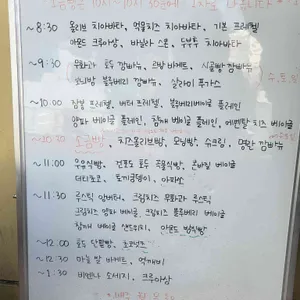 ~8:30 올리브 치아바타, 먹물치즈 치아바타, 기본 프레첼
아몬드 크루아상, 바닐라 스콘, 두부홀 치아바타
~9:30 무화과 호두 깜빠뉴, 르방 바게트, 시골빵 깜빠뉴
모닝빵 블루베리 깜빠뉴, 살라미 푸가스
~10:00 잠봉 프레첼, 버터 프레첼, 블루베리베이글 플레인
양파 베이글 플레인, 참깨 베이글 플레인, 에멘탈 치즈 베이글
소금빵, 치즈올리브빵, 모닝빵, 슈크림, 명란 깜빠뉴
~11:00 우유식빵, 건포도 호두 통밀식빵, 본바질 베이글
더티초코, 토끼굴뎅이, 아파소
~11:30 루스틱 앙버터, 크림치즈 무화과 루스틱
크림치즈 양파 베이글, 크림치즈 블루베리 베이글
참깨 베이글 샌드위치, 아몬드 밤식빵
~12:00 호두 단팥빵, 초코넛즈
~12:30 마늘쫑 바게트, 먹깨비
~1:30 비엔나 소세지, 크루아상